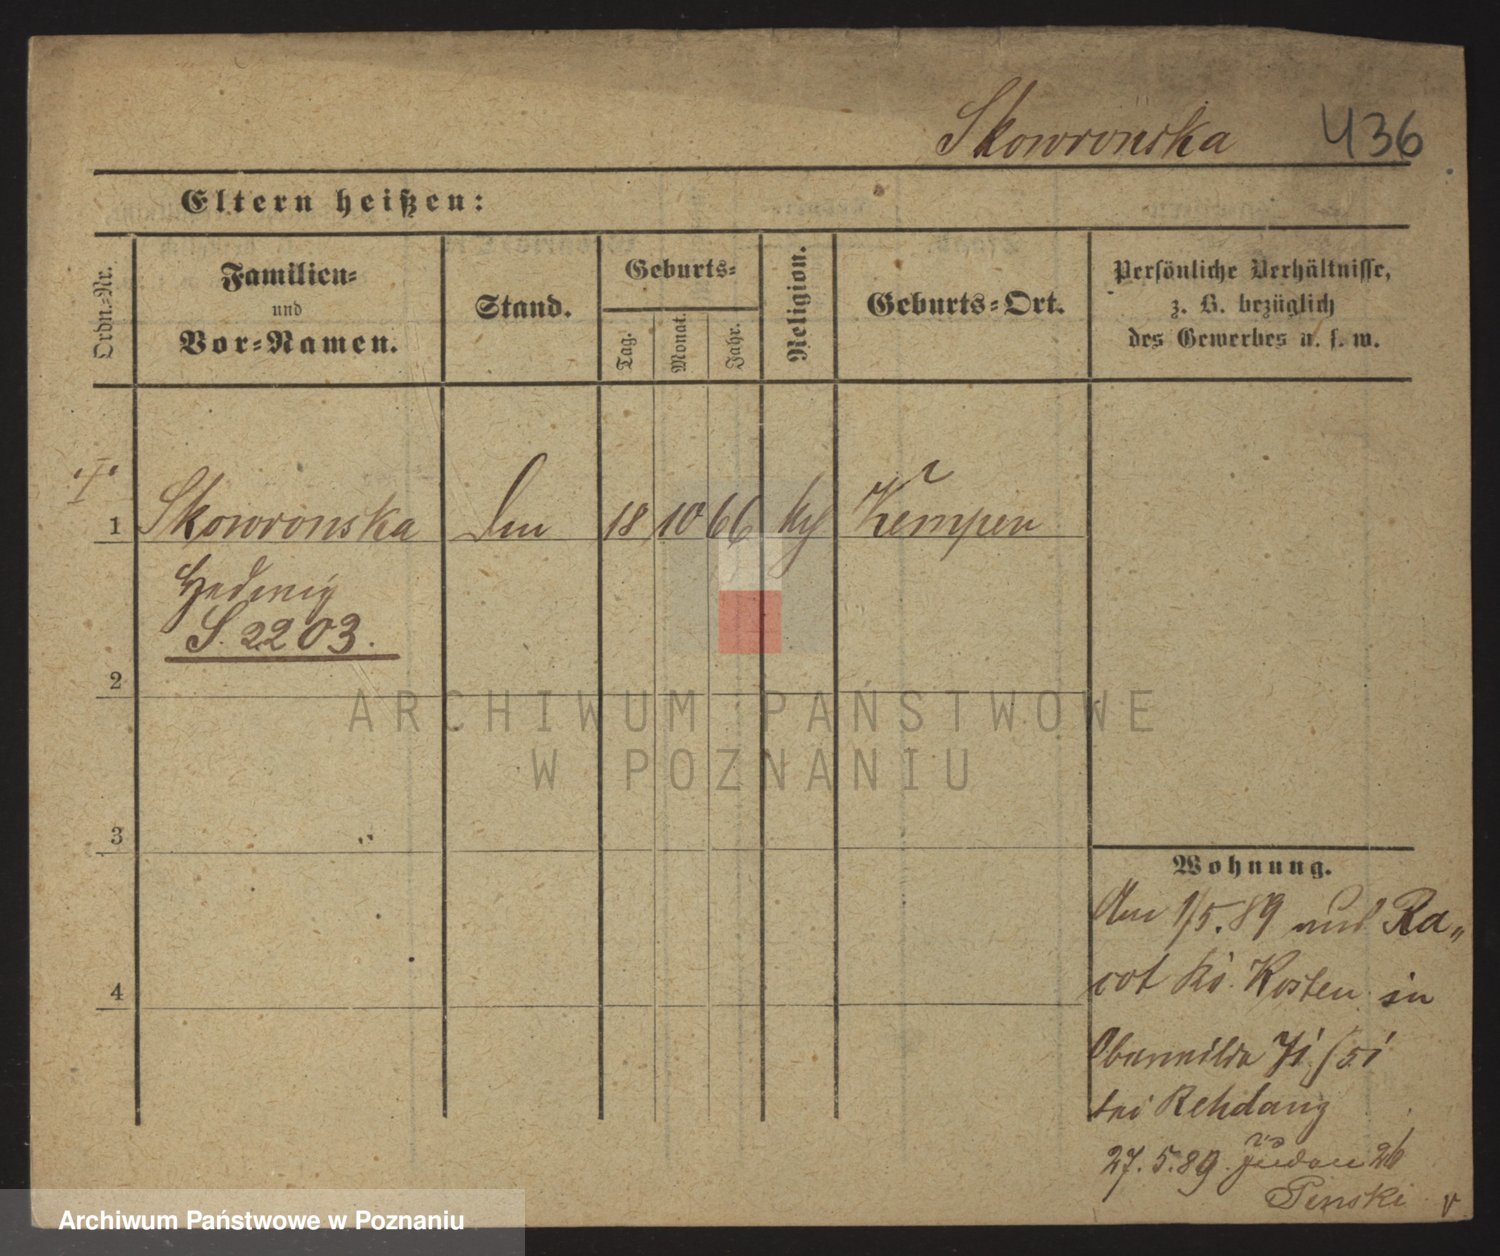 Skowrońska 436
Eltern heißen:
Ordn.-Nr.
Familien-
und
Vor-Namen.
Stand.
Geburts-
Tag.
Monat.
Jahr.
Religion.
Geburts-Ort.
Persönliche Verhältnisse,
z. B. bezüglich
des Gewerbes u. s. w.
1 Skowronska 18 10 66 Kempen
Hedwig
S. 2203.
2
3
4
Wohnung.
Am 1/5.89 aus Ra„
cot Kr. Kosten in
bei
27.5.89. Juden 26
Penski
ARCHIWUM PAŃSTWOWE
W POZNANIU
Archiwum Państwowe w Poznaniu